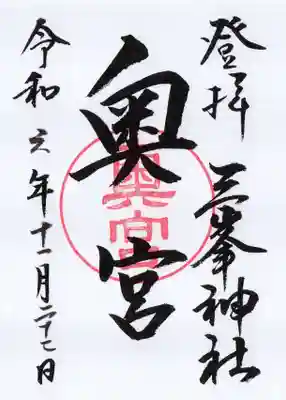 登拝 三峯神社
奥宮
奥宮
令和六年十一月二十七日